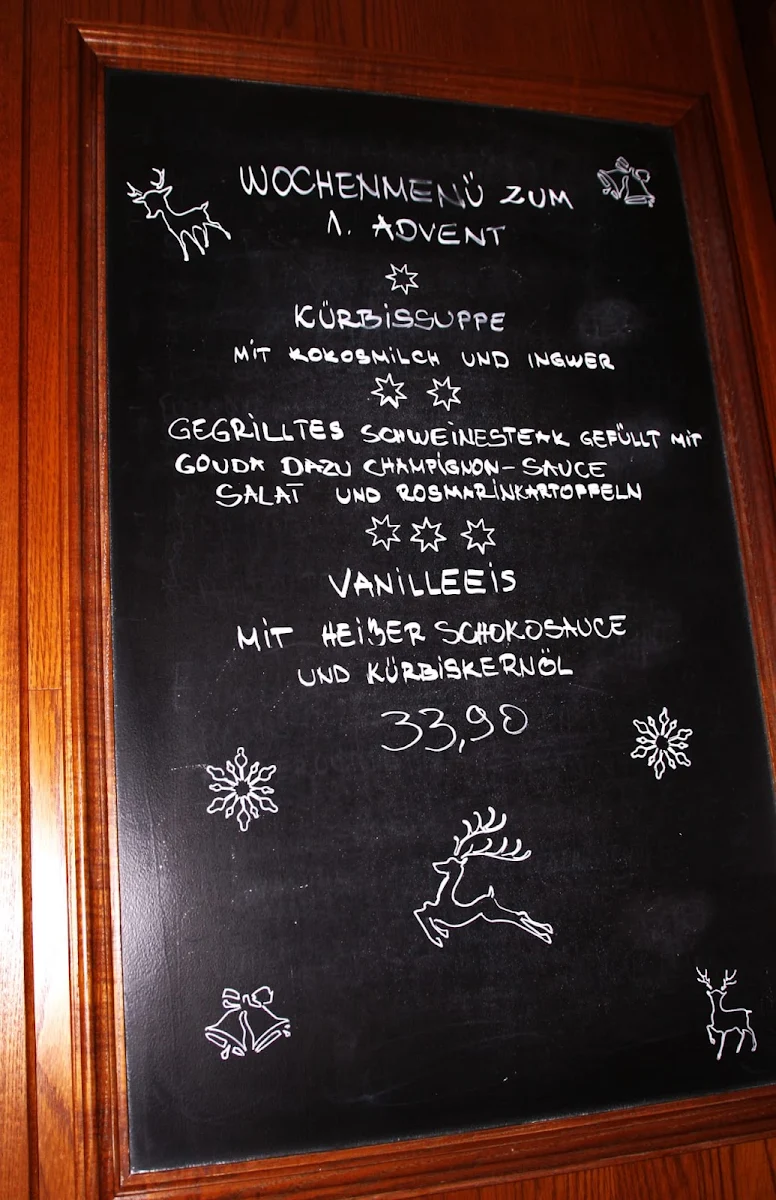 WOCHENMENÜ ZUM
1. ADVENT
KÜRBISSUPPE
MIT KOKOSMILCH UND INGWER
GEGRILLTES SCHWEINESTEAK GEFÜLLT MIT
GOUDA DAZU CHAMPIGNON-SAUCE
SALAT UND ROSMARINKARTOFFELN
VANILLEEIS
MIT HEIßER SCHOKOSAUCE
UND KÜRBISKERNÖL
33,90